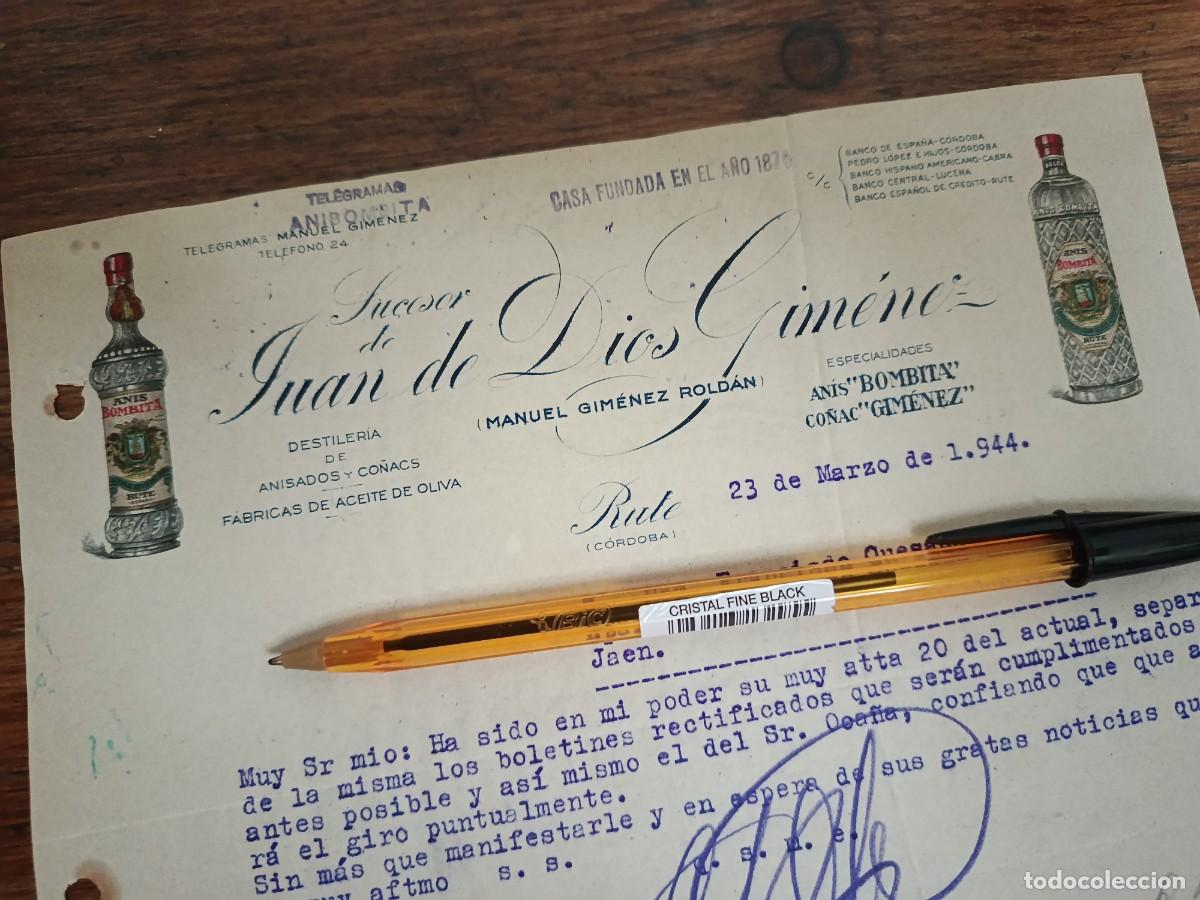 TELEGRAMAS
ANIBOMBITA
TELEGRAMAS: MANUEL GIMÉNEZ
TELÉFONO, 24
CASA FUNDADA EN EL AÑO 187
c/c
BANCO DE ESPAÑA-CÓRDOBA
PEDRO LÓPEZ E HIJOS-CÓRDOBA
BANCO HISPANO AMERICANO-CABRA
BANCO CENTRAL-LUCENA
BANCO ESPAÑOL DE CREDITO-RUTE
Sucesor
de
Juan de Dios Giménez
(MANUEL GIMÉNEZ ROLDÁN)
DESTILERÍA
DE
ANISADOS Y COÑACS
FÁBRICAS DE ACEITE DE OLIVA
ESPECIALIDADES
ANÍS "BOMBITA"
COÑAC "GIMÉNEZ"
ANIS
BOMBITA
RUTE
DULCE
ANIS BOMBITA
ANIS
BOMBITA
RUTE
Rute
(CÓRDOBA)
23 de Marzo de 1.944.
BIC
CRISTAL FINE BLACK
Jaen.
Muy Sr mio: Ha sido en mi poder su muy atta 20 del actual, separ
de la misma los boletines rectificados que serán cumplimentados
antes posible y así mismo el del Sr. Ocaña, confiando que que a
rá el giro puntualmente.
Sin más que manifestarle y en espera de sus gratas noticias qu
aftmo s. s. q. s. m. e.
todocoleccion